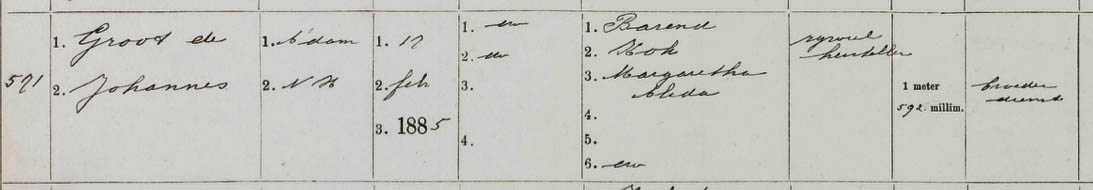 571
1. Groot de
2. Johannes
1. A'dam
2. N H
1. 17
2. feb
3. 1885
1. dw
2. dw
3.
4.
1. Barend
2. Kok
3. Margaretha
Aleida
4.
5.
6. dw
rywiel
hersteller
1 meter
592 millim.
broeder
dienst